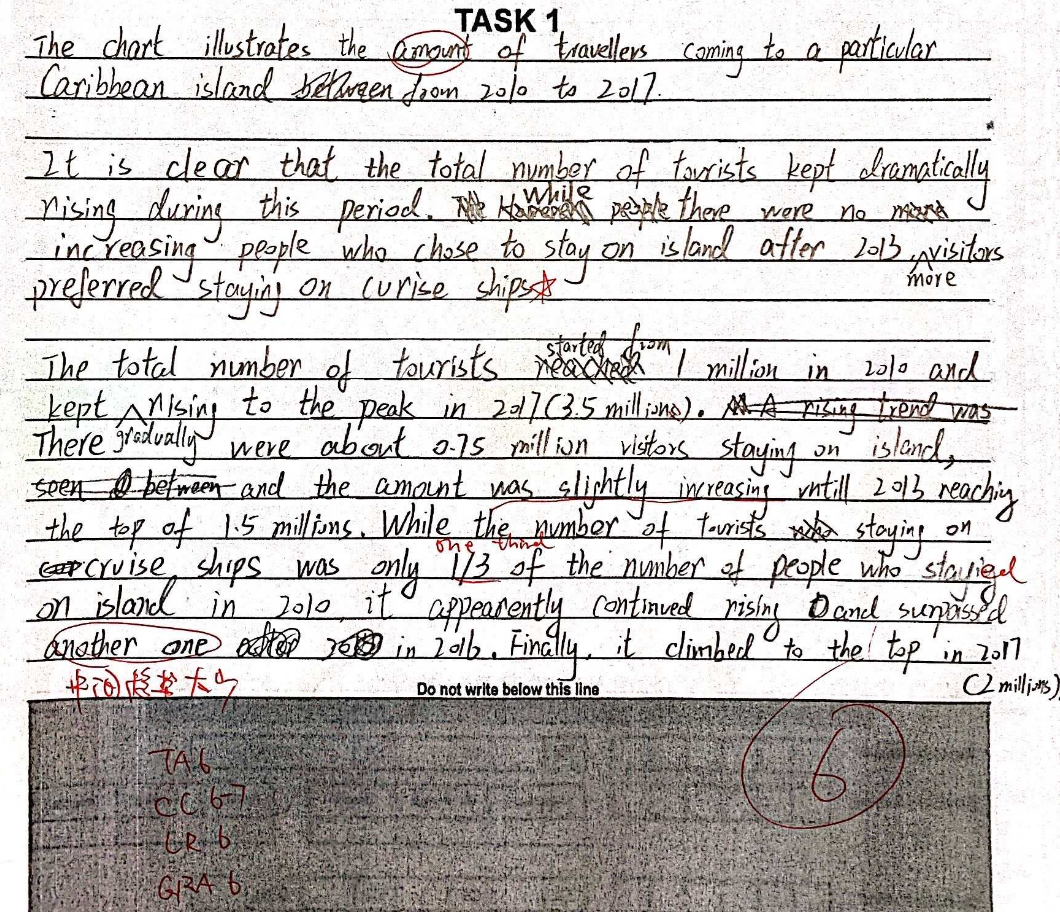 TASK 1
The chart illustrates the amount of travellers coming to a particular
Caribbean island between from 2010 to 2017.
It is clear that the total number of tourists kept dramatically
while
rising during this period. people there were no more
increasing people who chose to stay on island after 2013, visitors
more
preferred staying on curise ships
started from
The total number of tourists reached 1 million in 2010 and
kept rising to the peak in 2017 (3.5 millions). A rising trend was
gradually
There were about 0.75 million visitors staying on island,
seen between and the amount was slightly increasing untill 2013 reaching
the top of 1.5 millions. While the number of tourists who staying on
one third
cruise ships was only 1/3 of the number of people who stayied
on island in 2010, it appearently continued rising and surpassed
another one in 2016. Finally, it climbed to the top in 2017
(2 millions)
Do not write below this line
6
TA 6
CC 6-7
LR 6
GRA 6